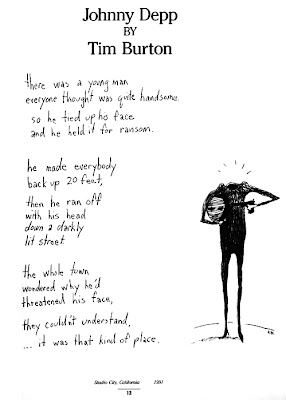 Johnny Depp
BY
Tim Burton
there was a young man
everyone thought was quite handsome.
so he tied up his face
and he held it for ransom.
he made everybody
back up 20 feet,
then he ran off
with his head
down a darkly
lit street.
the whole town
wondered why he'd
threatened his face,
they couldn't understand,
... it was that kind of place.
Studio City, California 1991
12